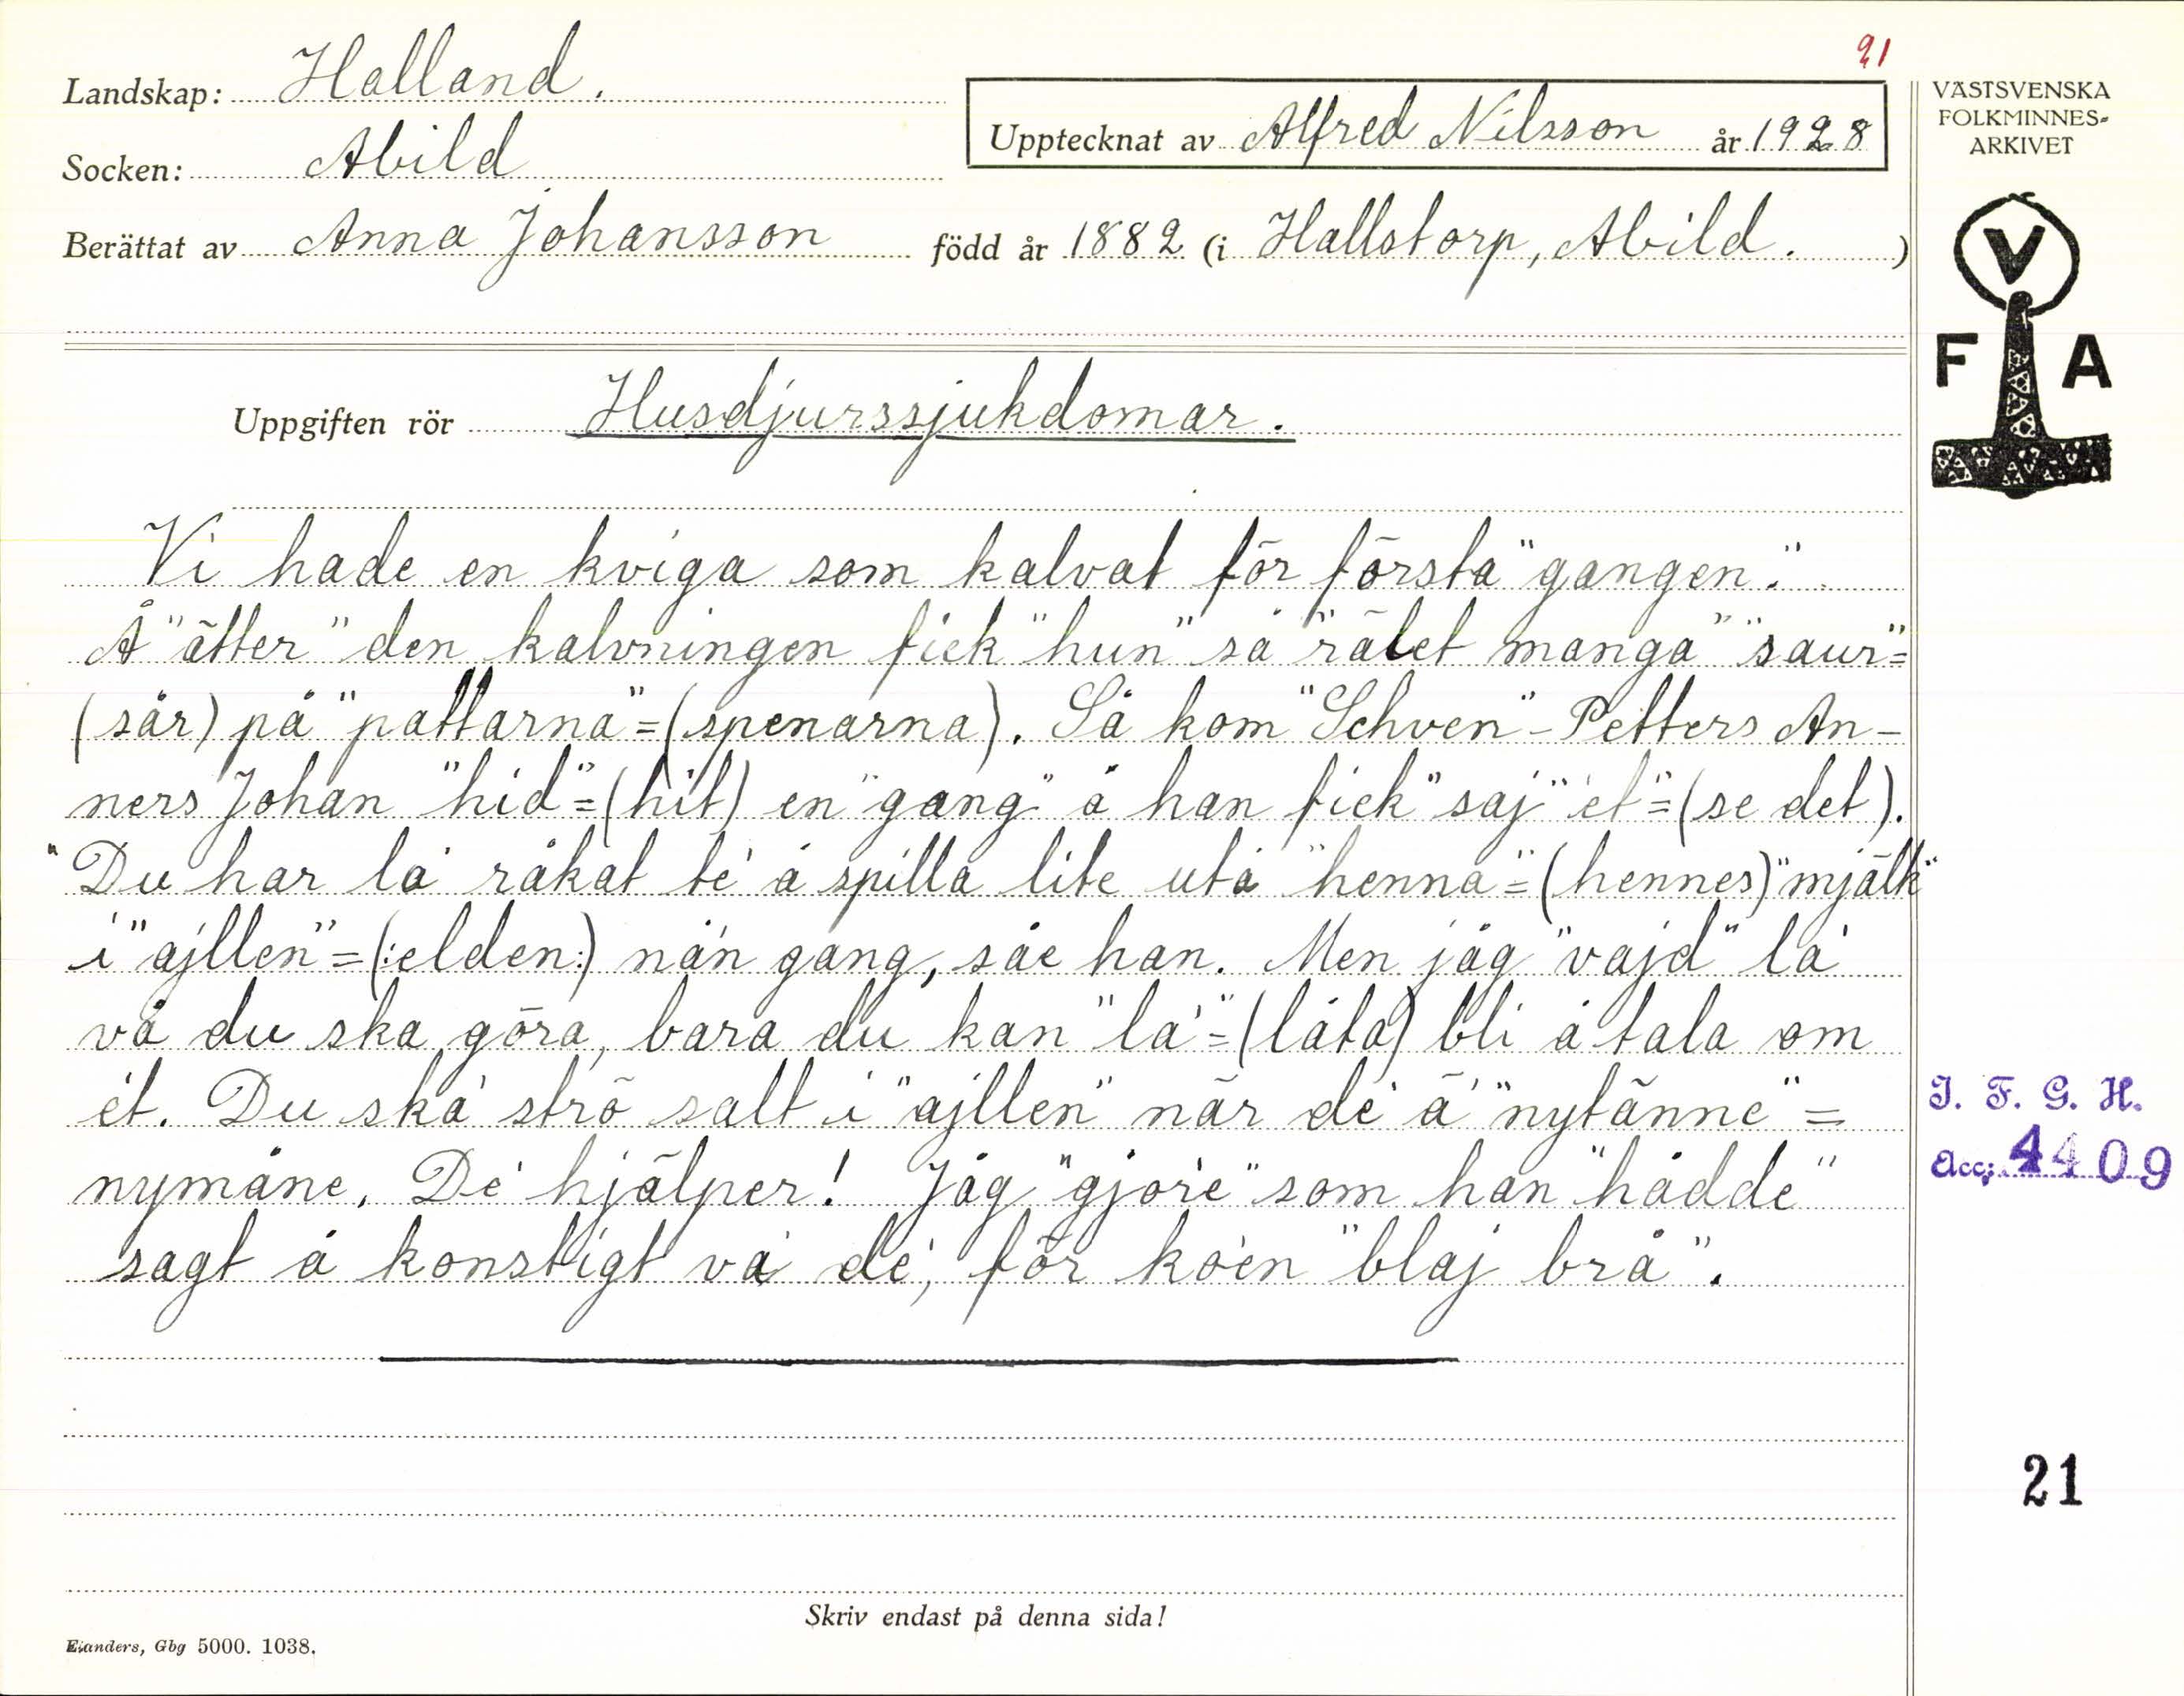 21
Landskap: Halland.
Upptecknat av Alfred Nilsson år 1928
VÄSTSVENSKA
FOLKMINNES-
ARKIVET
Socken: Abild
Berättat av Anna Johansson född år 1882 (i Hallstorp, Abild. )
V
F A
Uppgiften rör Husdjurssjukdomar.
Vi hade en kviga som kalvat för första "gangen".
Å "ätter" den kalvningen fick "hun" så "rälet manga" "saur"=
(sår) på "pattarna"=(spenarna). Så kom "Schven"-Petters An-
ners Johan "hid"=(hit) en "gang" å han fick "saj" "et"=(se det).
"Du har la råkat te' å spilla lite utå "henna"=(hennes) "mjälk"
i "ajllen"=(:elden:) nå'n gang, säe han. Men jåg "vajd" la'
vå du ska göra, bara du kan "la'"=(låta) bli å tala om
et. Du ska' strö salt i "ajllen" när de' ä' "nytänne"=
nymåne. De' hjälper! Jåg "gjore" som han "hådde"
sagt å konstigt va' de', för ko'en "blaj brå".
I. F. G. H.
Acc: 4409
21
Skriv endast på denna sida!
Elanders, Gbg 5000. 1038.